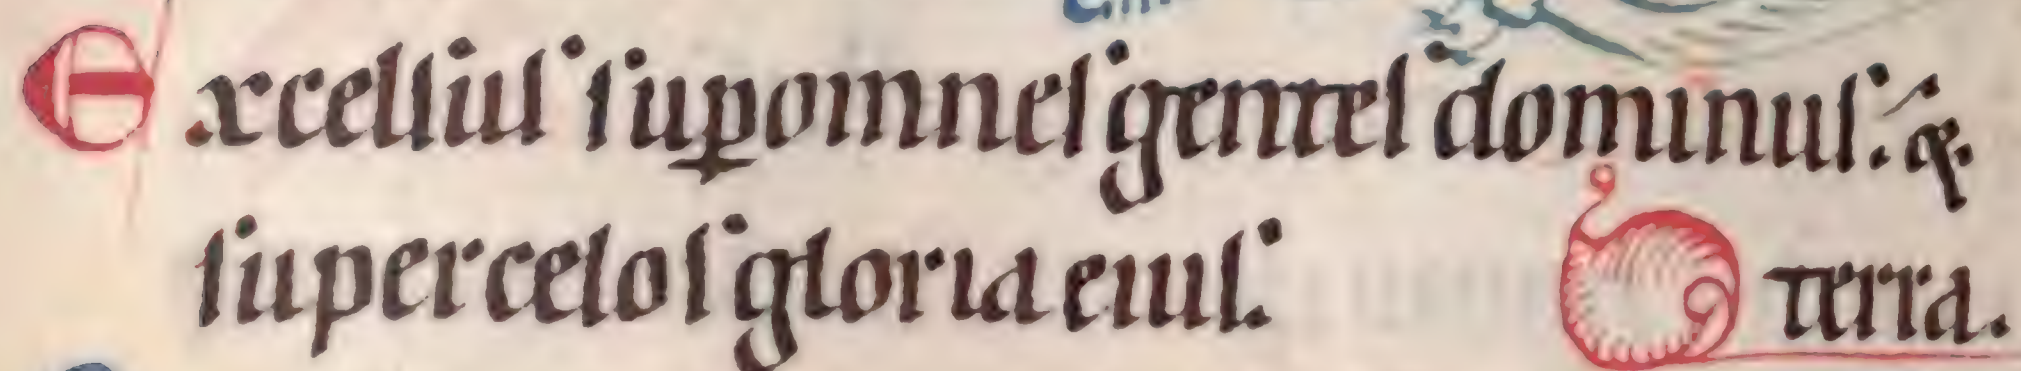 Excelſuſ ſuꝑ omneſ genteſ dominuſ: &
ſuper celoſ gloria eiuſ. terra.